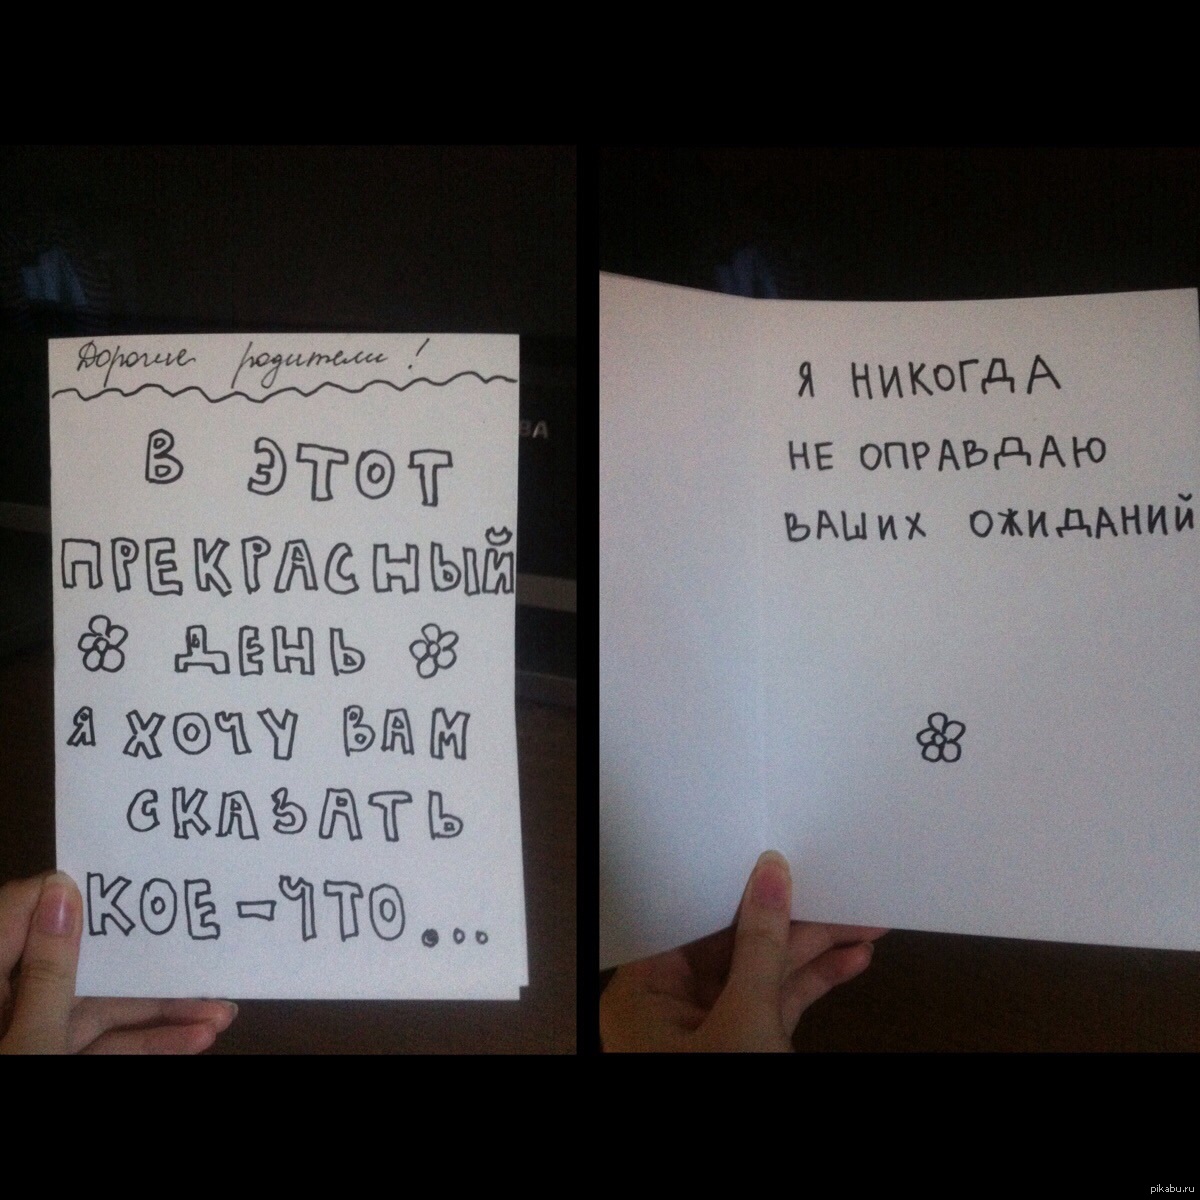 Дорогие родители!
В ЭТОТ
ПРЕКРАСНЫЙ
ДЕНЬ
Я ХОЧУ ВАМ
СКАЗАТЬ
КОЕ-ЧТО...
Я НИКОГДА
НЕ ОПРАВДАЮ
ВАШИХ ОЖИДАНИЙ
pikabu.ru